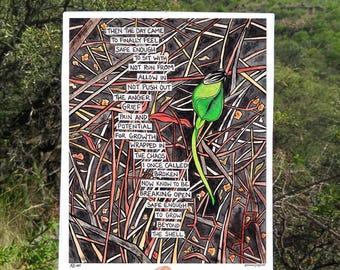 THEN THE DAY CAME
TO FINALLY FEEL
SAFE ENOUGH
TO SIT WITH
NOT RUN FROM
ALLOW IN
NOT PUSH OUT
THE ANGER
GRIEF
PAIN AND
POTENTIAL
FOR GROWTH
WRAPPED IN
THE CHAOS
I ONCE CALLED
BROKEN
NOW KNOW TO BE
BREAKING OPEN
SAFE ENOUGH
TO GROW
BEYOND
THE SHELL